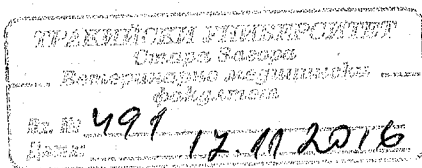 ТРАКИЙСКИ УНИВЕРСИТЕТ
Стара Загора
Ветеринарно медицински
факултет
Вх. № 491
Дата: 17.11.2016